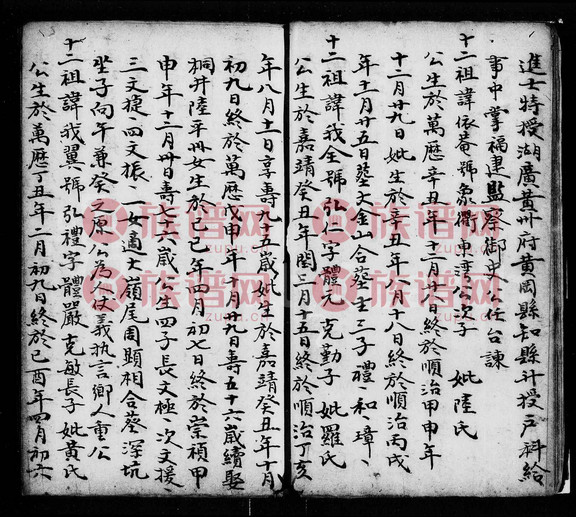 進士特授湖廣黃州府黃岡縣知縣升授戶科給
事中掌福建監察御史公任台諫
十二祖諱依菴號象衢東灣公次子 妣陸氏
公生於萬歷辛丑年十二月廿六日終於順治甲申年
十二月廿九日妣生於辛丑年八月十八日終於順治丙戌
年十一月廿五日葬文金山合葬生三子禮和璋
十二祖諱我全號弘仁字體元克勤子妣羅氏
公生於嘉靖癸丑年閏三月十五日終於順治丁亥
年八月十一日享壽九十五歲妣生於嘉靖癸丑年十月
初九日終於萬歷戊申年十月廿九日壽五十六歲續娶
桐井陸平川女生於己巳年四月初七日終於崇禎甲
申年十二月卅日壽七十六歲公生四子長文極次文援
三文捷四文振一女適大嶺尾周顯相合葬深坑
坐子向午兼癸公為仗義執言鄉人重公
十二祖諱我翼號弘禮字體嚴克敏長子妣黃氏
公生於萬歷丁丑年二月初九日終於己酉年四月初六
族谱网
zupu.cn